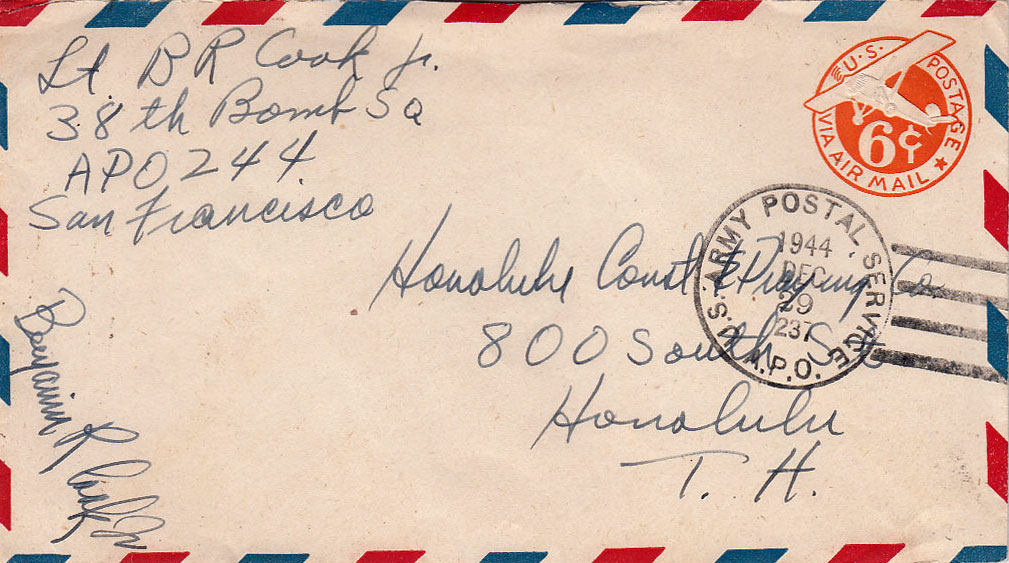 Lt B R Cook Jr.
38th Bomb Sq
APO 244
San Francisco
U.S. POSTAGE
6¢
VIA AIR MAIL
U.S. ARMY POSTAL SERVICE
1944
DEC
29
237
A.P.O.
Honolulu Const & Draying Co
800 South St
Honolulu
T. H.
Benjamin R Cook Jr